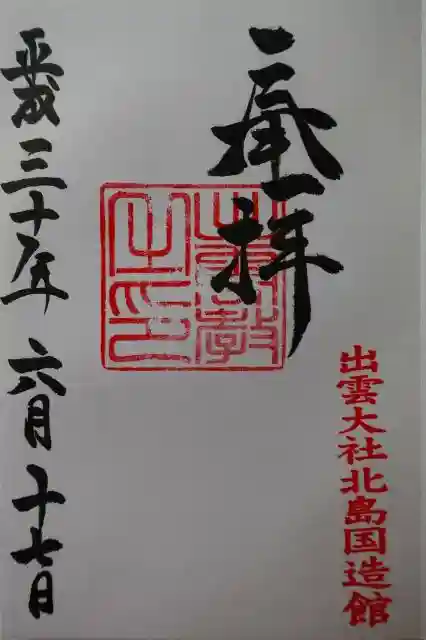 奉拝
出雲大社北島国造館
出雲教之印
平成三十年六月十七日